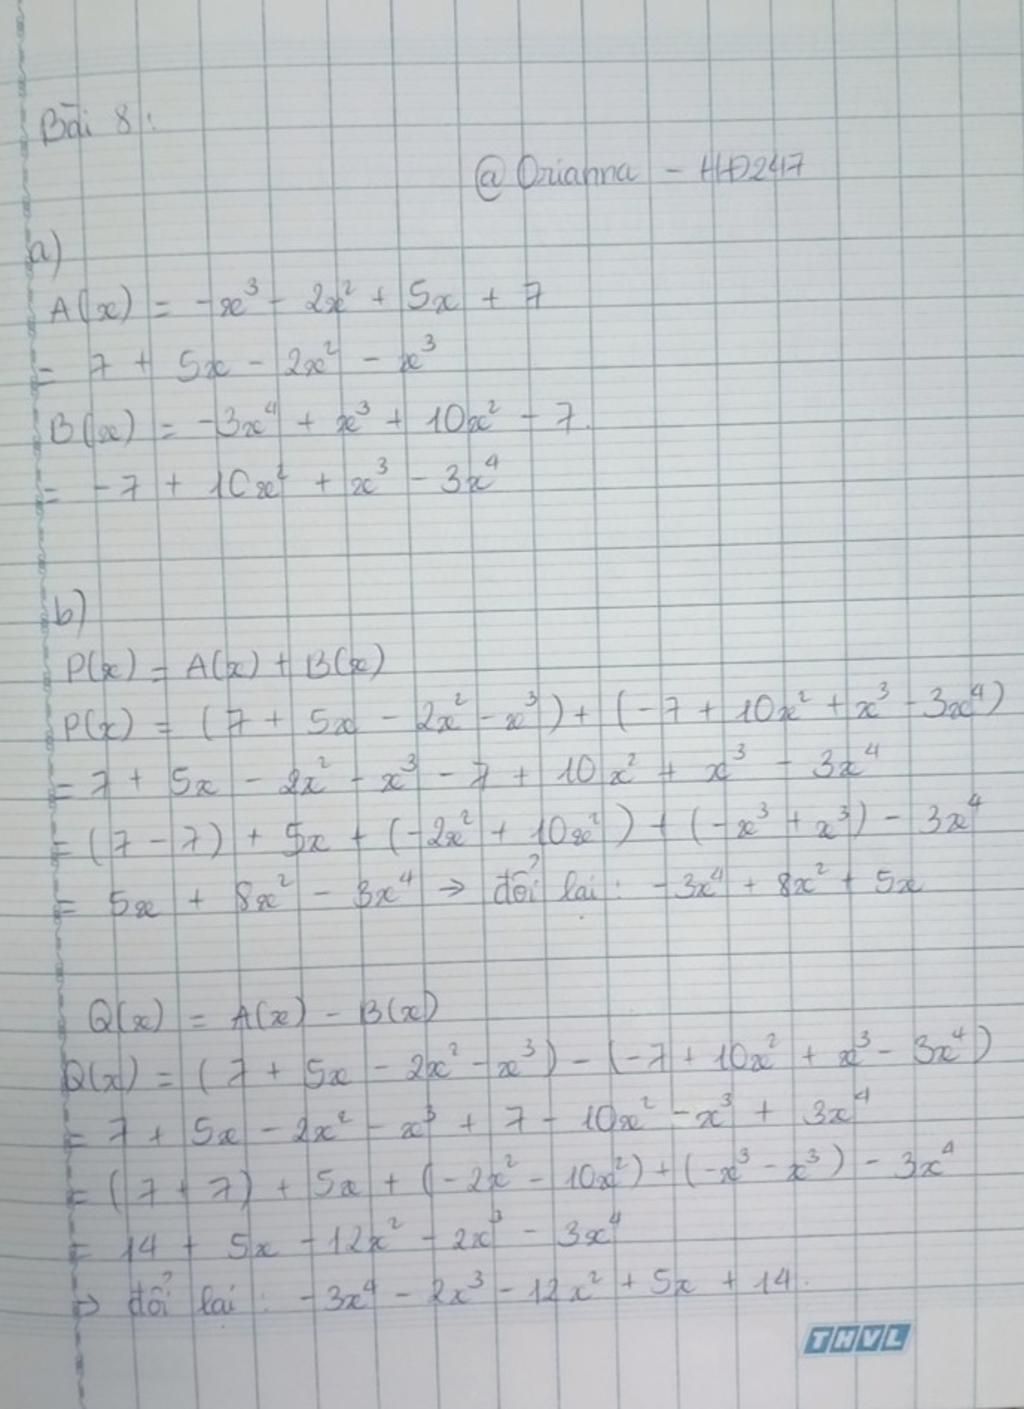 Bài 8:
@Orianna - HĐ247
a)
A(x) = -x³ - 2x² + 5x + 7
= 7 + 5x - 2x² - x³
B(x) = -3x⁴ + x³ + 10x² - 7.
= -7 + 10x² + x³ - 3x⁴
b)
P(x) = A(x) + B(x)
P(x) = (7 + 5x - 2x² - x³) + (-7 + 10x² + x³ - 3x⁴)
= 7 + 5x - 2x² - x³ - 7 + 10x² + x³ - 3x⁴
= (7 - 7) + 5x + (-2x² + 10x²) + (-x³ + x³) - 3x⁴
= 5x + 8x² - 3x⁴ → đổi lại: -3x⁴ + 8x² + 5x
Q(x) = A(x) - B(x)
Q(x) = (7 + 5x - 2x² - x³) - (-7 + 10x² + x³ - 3x⁴)
= 7 + 5x - 2x² - x³ + 7 - 10x² - x³ + 3x⁴
= (7 + 7) + 5x + (-2x² - 10x²) + (-x³ - x³) - 3x⁴
= 14 + 5x - 12x² - 2x³ - 3x⁴
→ đổi lại: -3x⁴ - 2x³ - 12x² + 5x + 14.
THVL